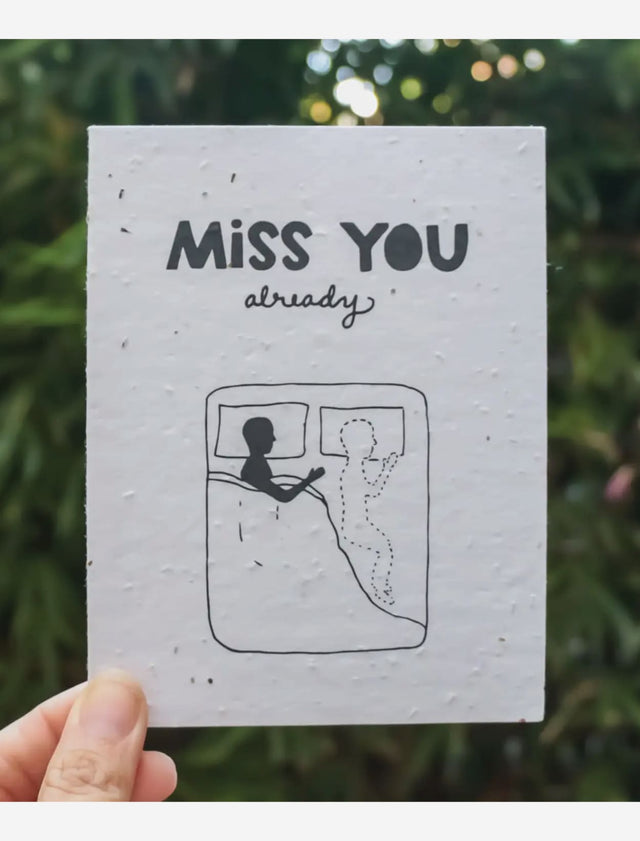 MiSS YOU
already